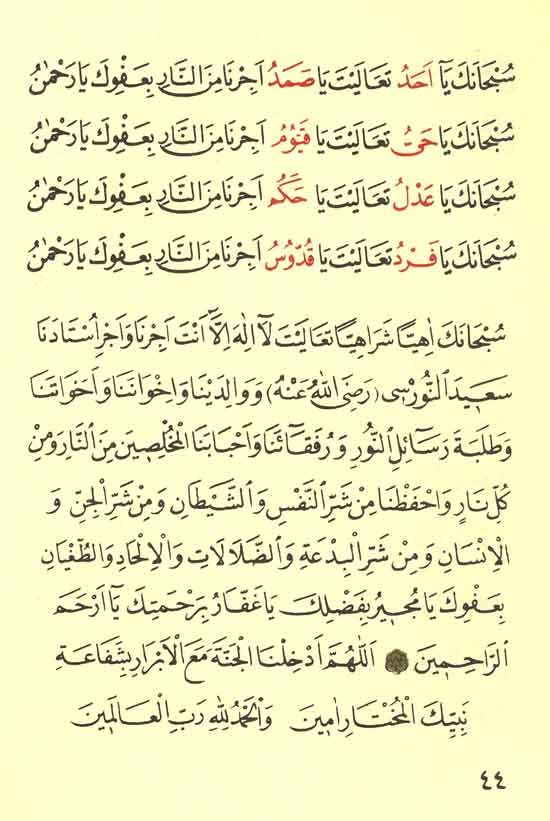 سُبْحَانَكَ يَآ اَحَدُ تَعَالَيْتَ يَا صَمَدُ اَجِرْنَا مِنَ النَّارِ بِعَفْوِكَ يَا رَحْمٰنُ
سُبْحَانَكَ يَا حَىُّ تَعَالَيْتَ يَا قَيُّومُ اَجِرْنَا مِنَ النَّارِ بِعَفْوِكَ يَا رَحْمٰنُ
سُبْحَانَكَ يَا عَدْلُ تَعَالَيْتَ يَا حَكَمُ اَجِرْنَا مِنَ النَّارِ بِعَفْوِكَ يَا رَحْمٰنُ
سُبْحَانَكَ يَا فَرْدُ تَعَالَيْتَ يَا قُدُّوسُ اَجِرْنَا مِنَ النَّارِ بِعَفْوِكَ يَا رَحْمٰنُ
سُبْحَانَكَ اٰهِيًّا شَرَاهِيًّا تَعَالَيْتَ لَآ اِلٰهَ اِلَّآ اَنْتَ اَجِرْنَا وَاَجِرْ اُسْتَادَنَا
سَعِيدَ النُّورْسِى (رَضِىَ اللّٰهُ عَنْهُ) وَوَالِدِينَا وَاِخْوَانَنَا وَاَخَوَاتَنَا
وَطَلَبَةَ رَسَآئِلِ النُّورِ وَرُفَقَآئَنَا وَاَحْبَابَنَا الْمُخْلِصِينَ مِنَ النَّارِ وَمِنْ
كُلِّ نَارٍ وَاحْفَظْنَا مِنْ شَرِّ النَّفْسِ وَالشَّيْطَانِ وَمِنْ شَرِّ الْجِنِّ وَ
الْاِنْسَانِ وَمِنْ شَرِّ الْبِدْعَةِ وَالضَّلَالَاتِ وَالْاِلْحَادِ وَالطُّغْيَانِ
بِعَفْوِكَ يَا مُجِيرُ بِفَضْلِكَ يَا غَفَّارُ بِرَحْمَتِكَ يَآ اَرْحَمَ
الرَّاحِمِينَ اَللّٰهُمَّ اَدْخِلْنَا الْجَنَّةَ مَعَ الْاَبْرَارِ بِشَفَاعَةِ
نَبِيِّكَ الْمُخْتَارِ اٰمِينَ وَالْحَمْدُ لِلّٰهِ رَبِّ الْعَالَمِينَ
٤٤